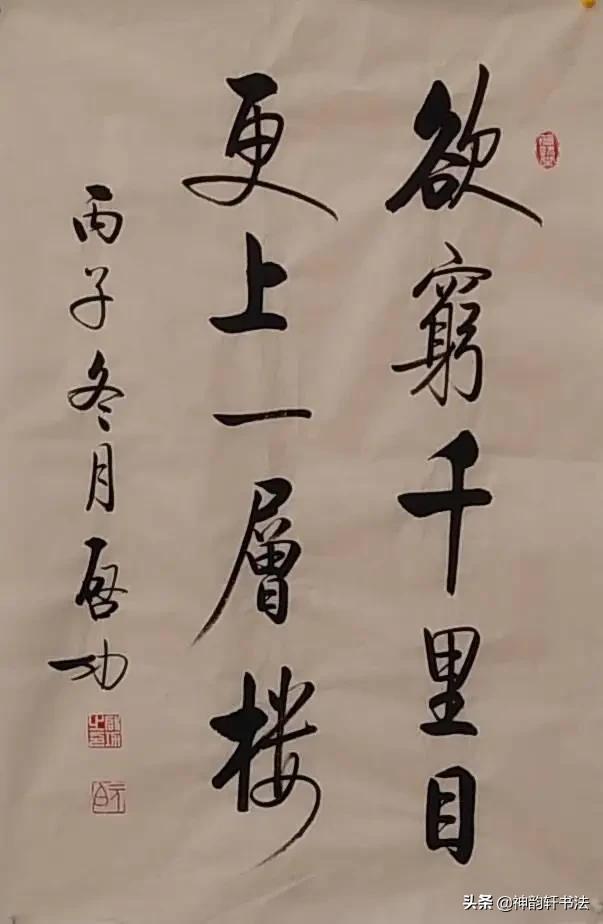 欲窮千里目
更上一層楼
丙子冬月啓功
头条 @神韵轩书法